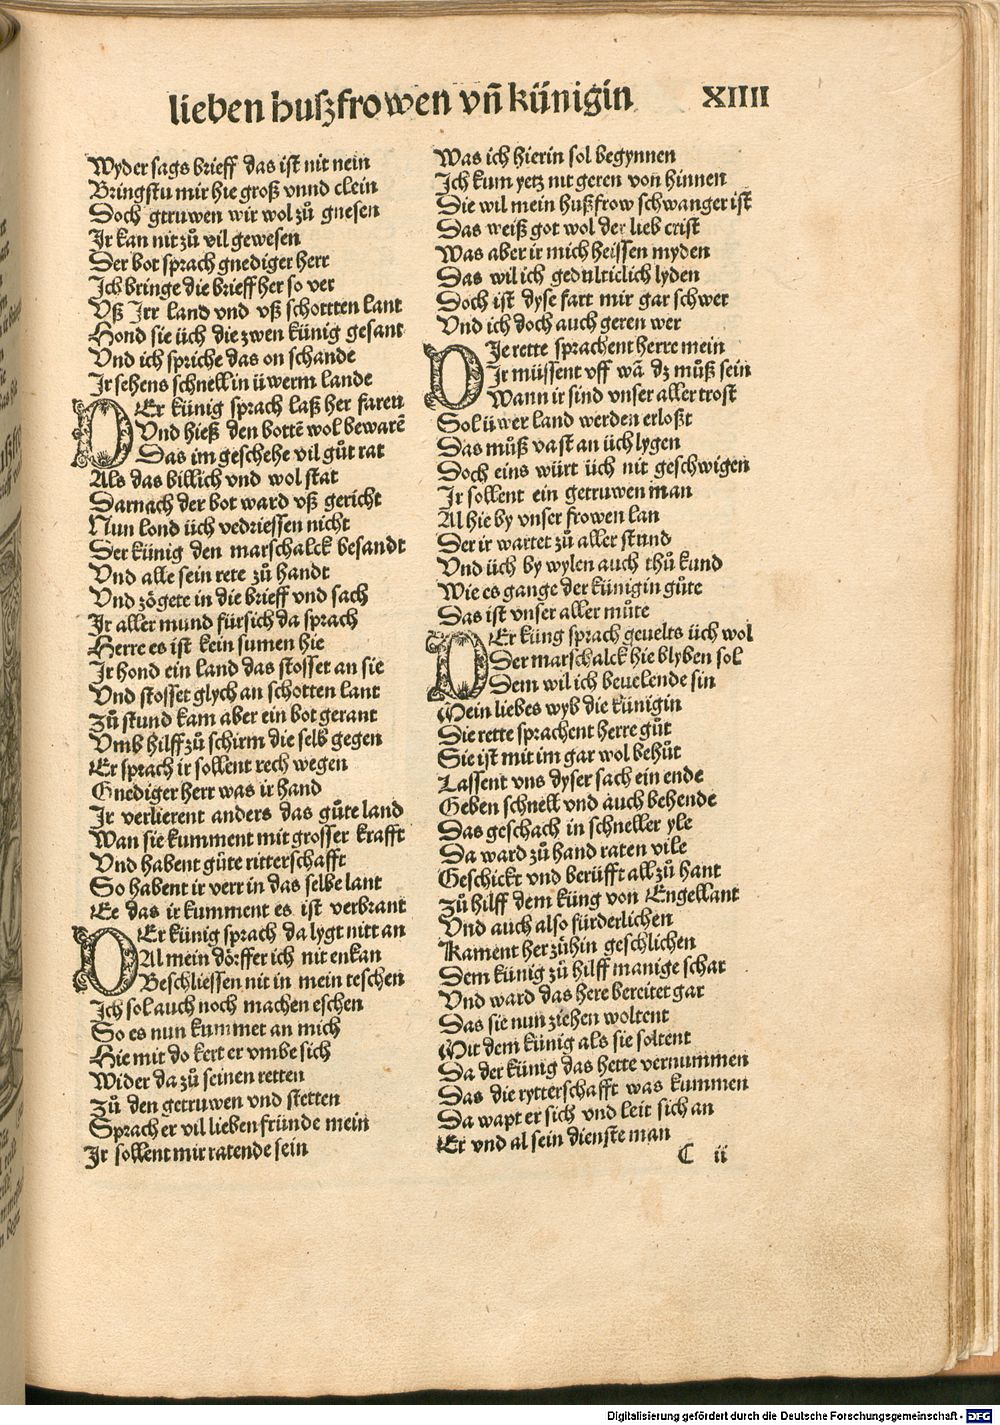 lieben huſzfrowen vñ künigin XIIII
Wyder sags brieff das iſt nit nein
Bringſtu mir hie groß vnnd clein
Doch getruwen wir wol zů gnesen
Ir kan nit zů vil gewesen
Der bot sprach gnediger herr
Ich bringe die brieff her so ver
Vß Irr land vnd vß schottten lant
Hond sie üch die zwen künig gesant
Vnd ich spriche das on schande
Ir sehens schnell in üwerm lande
DEr künig sprach laß her faren
Vnd hieß den bottē wol bewarē
Das im geschehe vil gůt rat
Als das billich vnd wol stat
Darnach der bot ward vß gericht
Nun lond üch vedriessen nicht
Der künig den marschalck besandt
Vnd alle sein rete zů handt
Vnd zögete in die brieff vnd sach
Ir aller mund fürsich da sprach
Herre es ist kein sumen hie
Ir hond ein land das stosset an sie
Vnd stosset glych an schotten lant
Zů stund kam aber ein bot gerant
Vmb hilff zů schirm die selb gegen
Er sprach ir sollent rech wegen
Gnediger herr was ir hand
Ir verlierent anders das gůte land
Wan sie kumment mit grosser krafft
Vnd habent gůte ritterschafft
So habent ir verr in das selbe lant
Ee das ir kumment es ist verbrant
DEr künig sprach da lygt nitt an
Al mein dörffer ich nit enkan
Beschliessen nit in mein teschen
Ich sol auch noch machen eschen
So es nun kummet an mich
Hie mit do kert er vmbe sich
Wider da zů seinen retten
Zů den getruwen vnd stetten
Sprach er vil lieben fründe mein
Ir sollent mir ratende sein
Was ich hierin sol begynnen
Ich kum yetz nit geren von hinnen
Die wil mein hußfrow schwanger ist
Das weiß got wol der lieb crist
Was aber ir mich heissen myden
Das wil ich gedulticlich lyden
Doch ist dyse fart mir gar schwer
Vnd ich doch auch geren wer
DIe rette sprachent herre mein
Ir müssent vff wā dz můß sein
Wann ir sind vnser aller trost
Sol üwer land werden erloßt
Das můß vast an üch lygen
Doch eins würt üch nit geschwigen
Ir sollent ein getruwen man
Al hie by vnser frowen lan
Der ir wartet zů aller stund
Vnd üch by wylen auch thů kund
Wie es gange der künigin gůte
Das ist vnser aller můte
DEr küng sprach geuelts üch wol
Der marschalck hie blyben sol
Dem wil ich beuelende sin
Mein liebes wyb die künigin
Die rette sprachent herre gůt
Sie ist mit im gar wol behůt
Lassent vns dyser sach ein ende
Geben schnell vnd auch behende
Das geschach in schneller yle
Da ward zů hand raten vile
Geschickt vnd berüfft all zů hant
Zů hilff dem küng von Engellant
Vnd auch also fürderlichen
Kament her zůhin geschlichen
Dem künig zů hilff manige schar
Vnd ward das here bereitet gar
Das sie nun ziehen woltent
Mit dem künig als sie soltent
Da der künig das hette vernummen
Das die rytterschafft was kummen
Da wapt er sich vnd leit sich an
Er vnd al sein dienste man
C ii
Digitalisierung gefördert durch die Deutsche Forschungsgemeinschaft - DFG